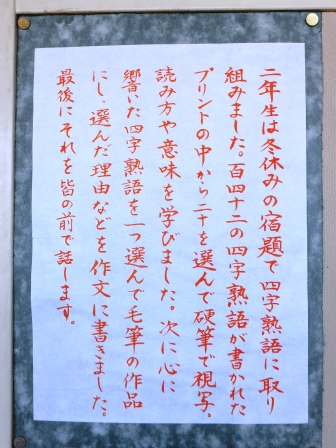 二年生は冬休みの宿題で四字熟語に取り
組みました。百四十二の四字熟語が書かれた
プリントの中から二十を選んで硬筆で視写。
読み方や意味を学びました。次に心に
響いた四字熟語を一つ選んで毛筆の作品
にし、選んだ理由などを作文に書きました。
最後にそれを皆の前で話します。